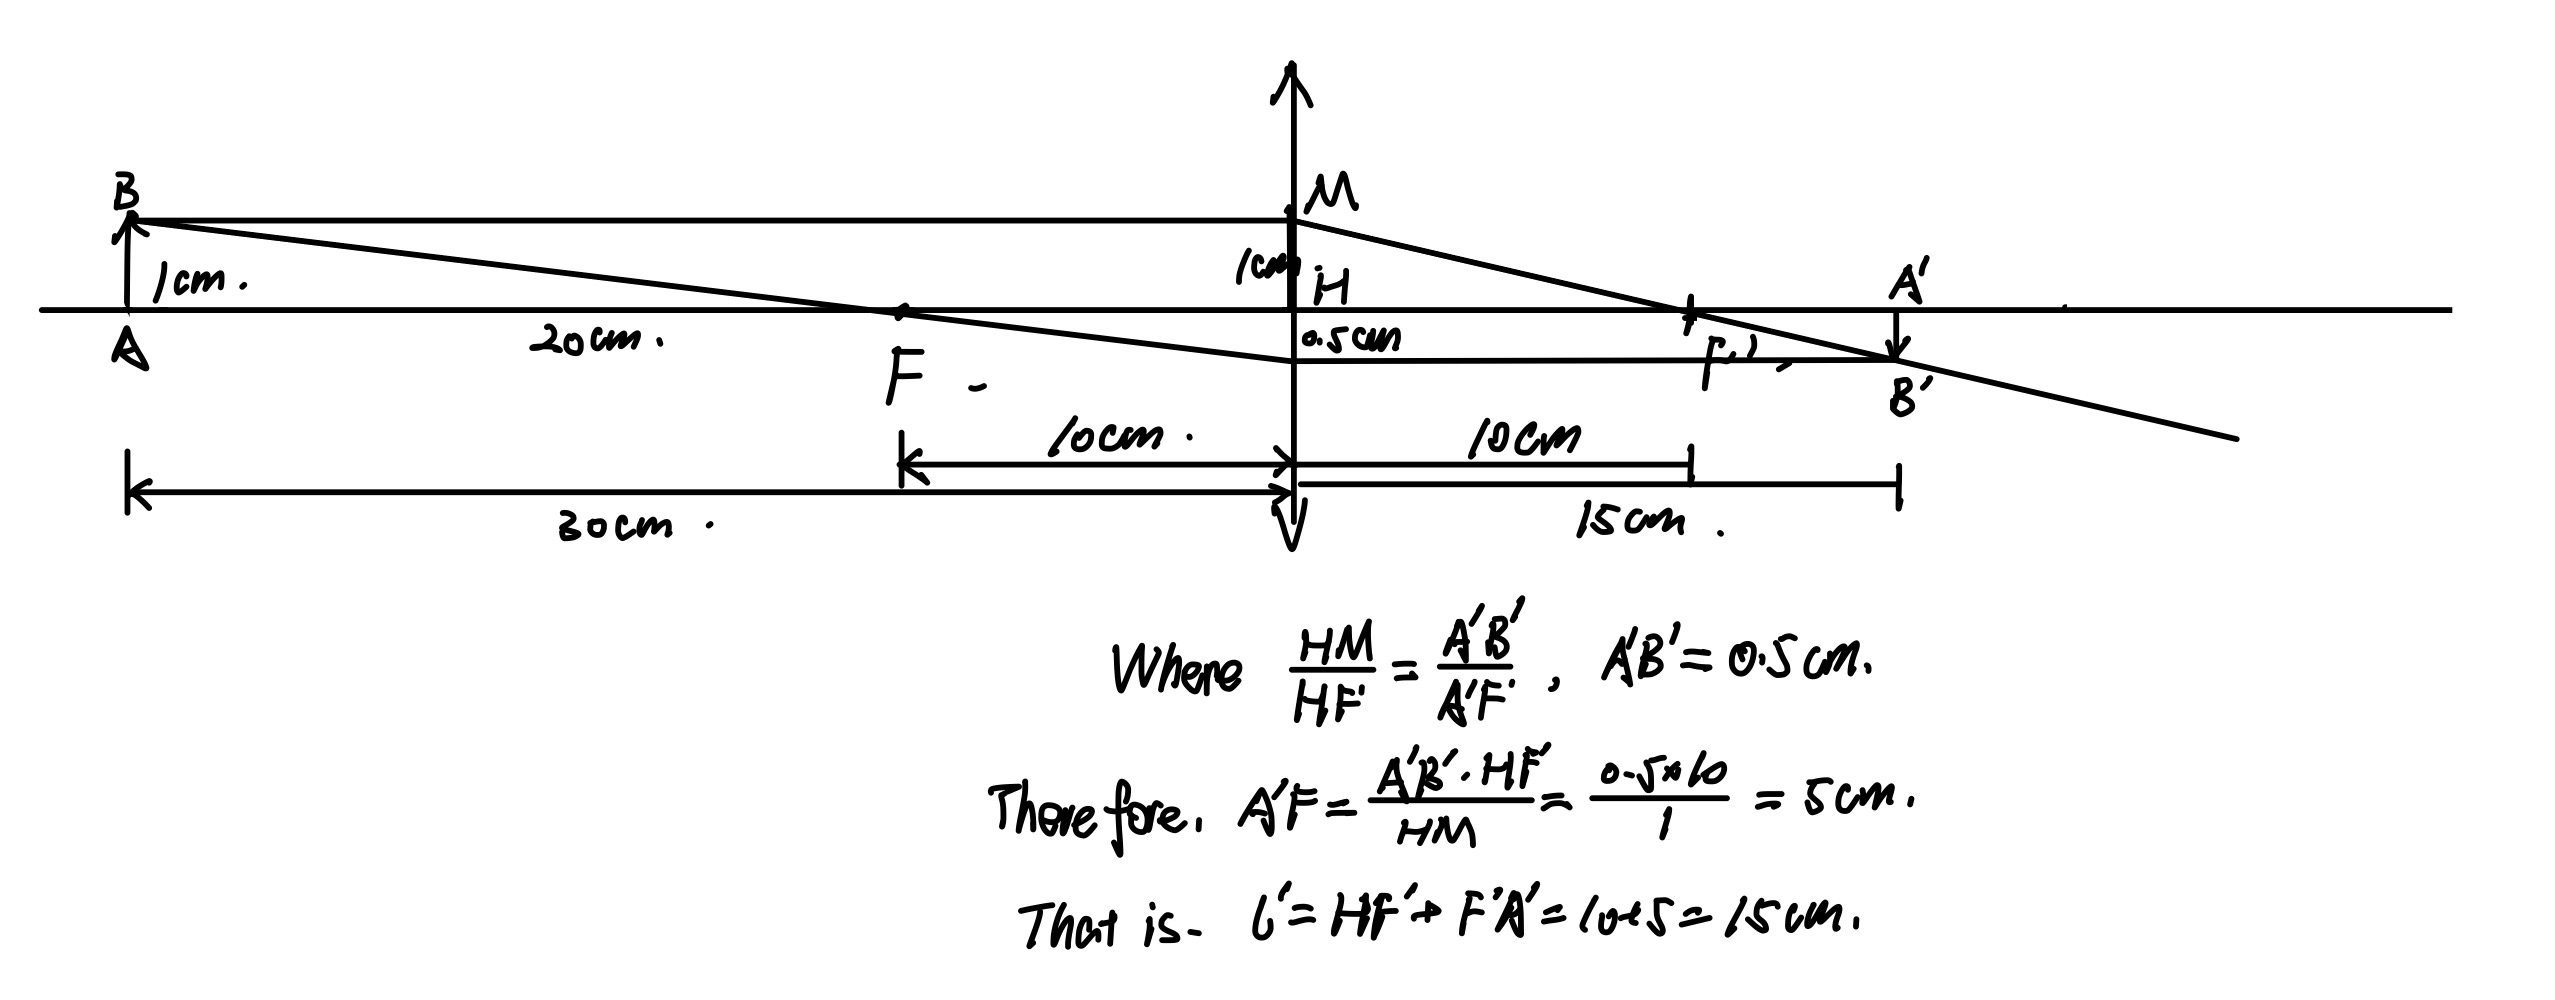 B
M
1cm.
1cm
H
A'
A
20cm.
0.5cm
F
F'
B'
10cm.
10cm
30cm.
15cm.
Where HM/HF' = A'B'/A'F', A'B' = 0.5cm.
Therefore. A'F = A'B'·HF'/HM = 0.5×10/1 = 5cm.
That is. l' = HF' + F'A' = 10+5 = 15cm.